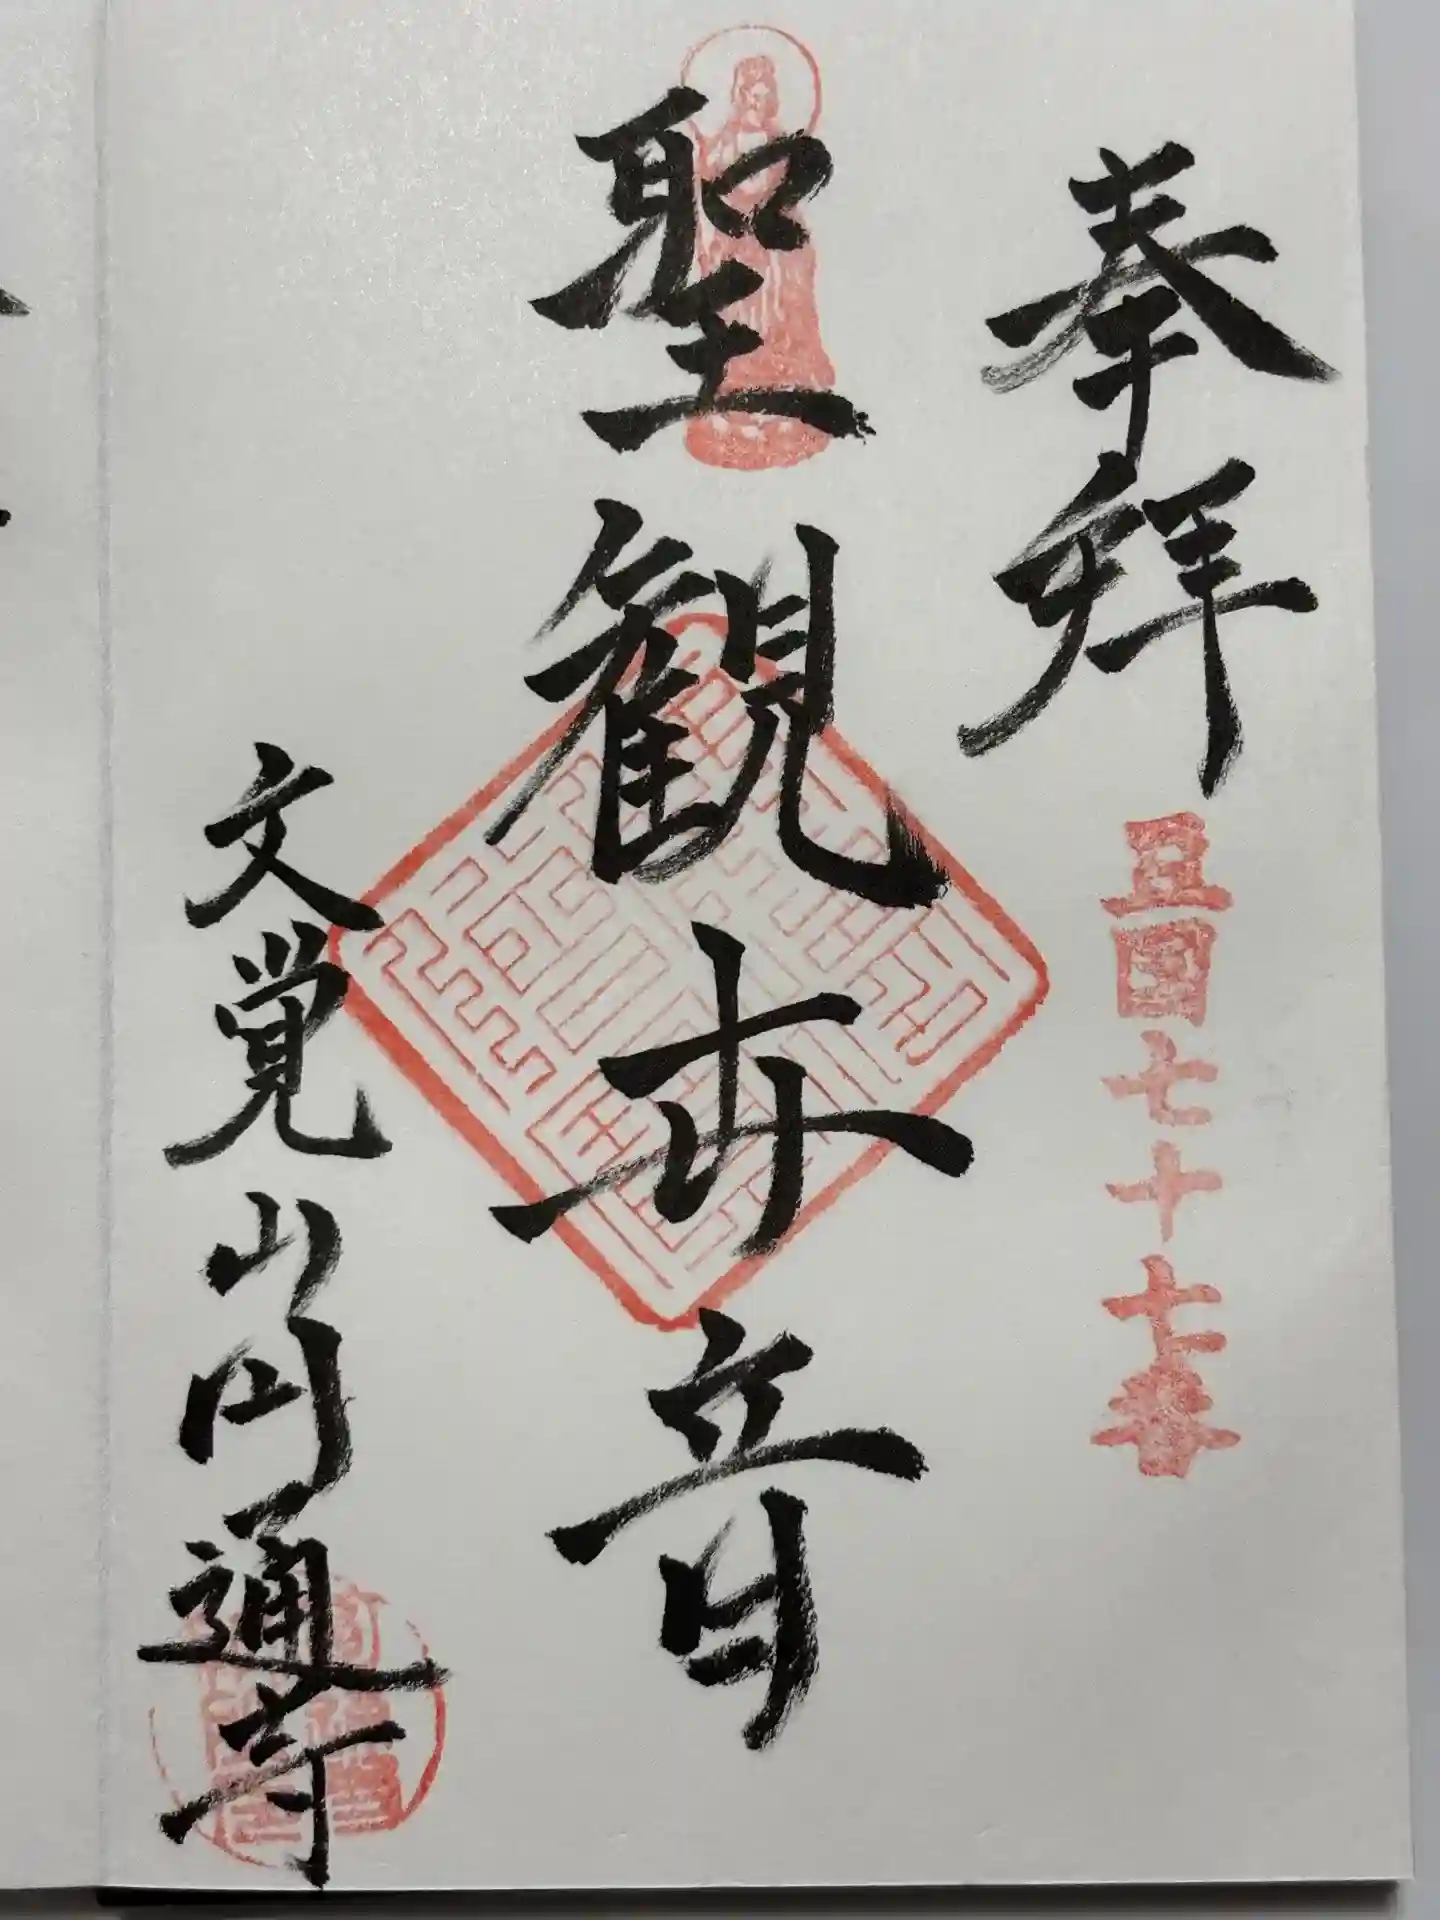 奉拝
豆国七十七番
聖観世音
文覚山円通寺